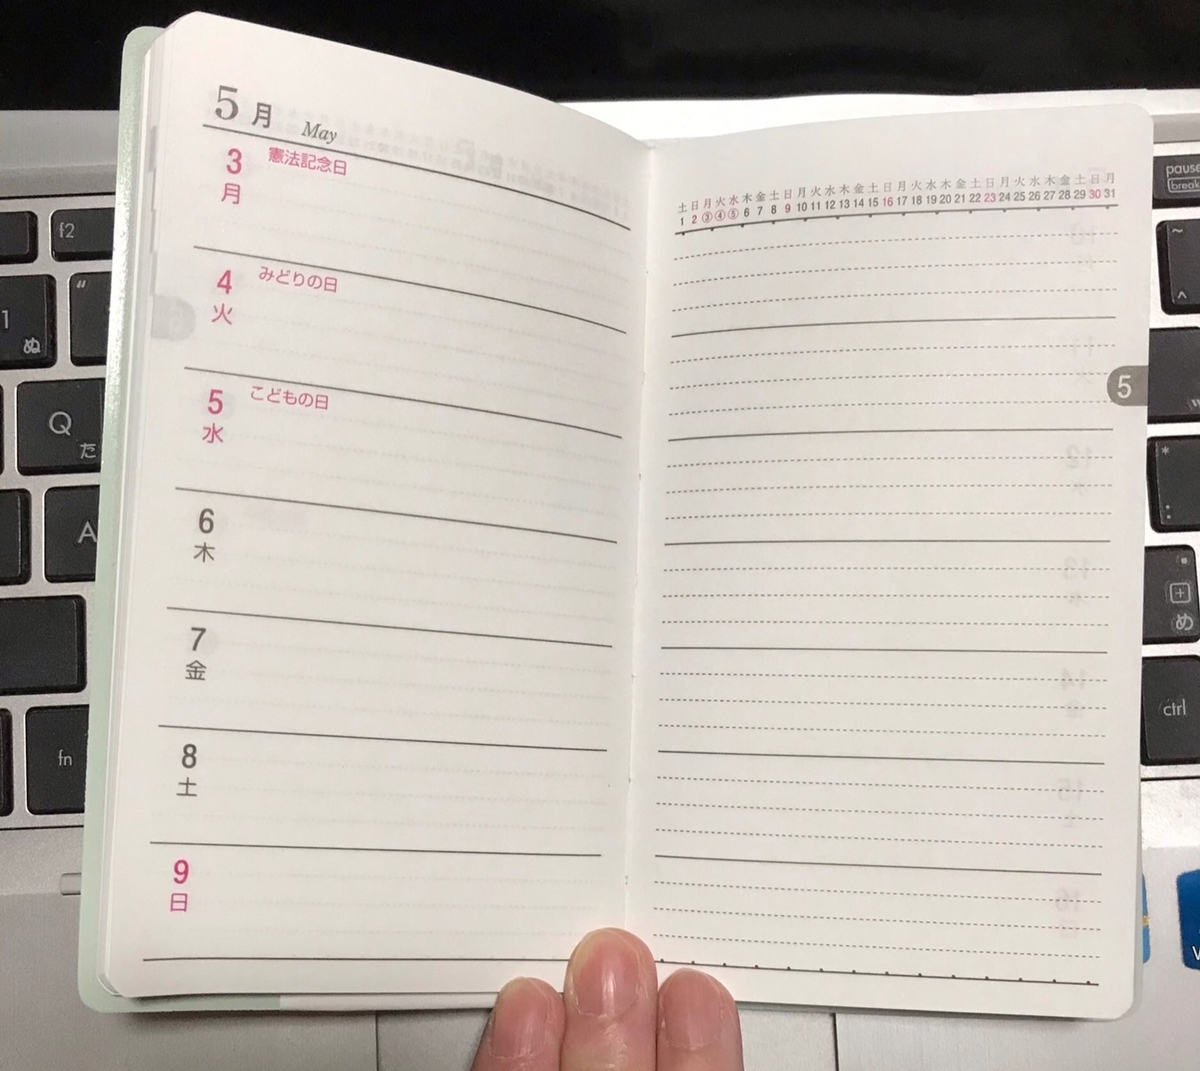 5月 May
3 憲法記念日
月
4 みどりの日
火
5 こどもの日
水
6
木
7
金
8
土
9
日
土日月火水木金土日月火水木金土日月火水木金土日月火水木金土日月
1 2 ③ ④ ⑤ 6 7 8 9 10 11 12 13 14 15 16 17 18 19 20 21 22 23 24 25 26 27 28 29 30 31
5
f2
1
ぬ
"
Q
た
A
fn
pause
break
~
^
*
:
め
ctrl